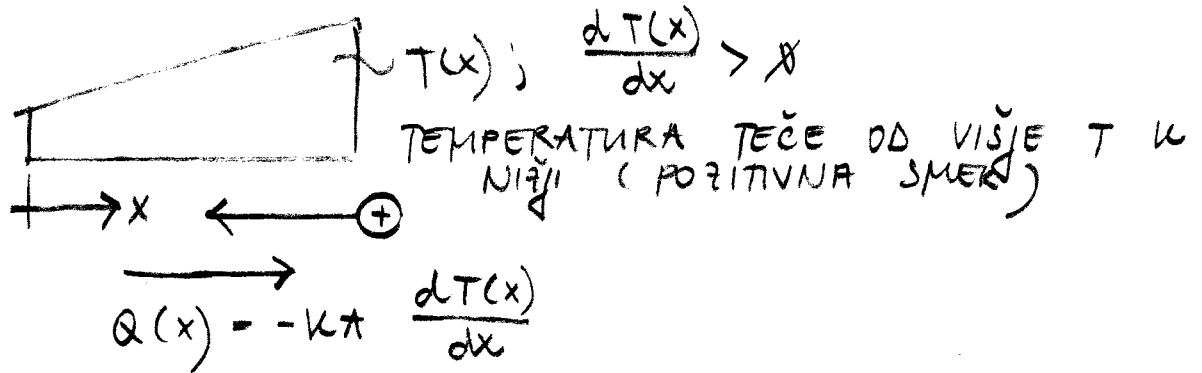 T(x) ; dT(x)/dx > 0
TEMPERATURA TEČE OD VIŠJE T K
NIŽJI (POZITIVNA SMER)
x +
Q(x) = -KA dT(x)/dx